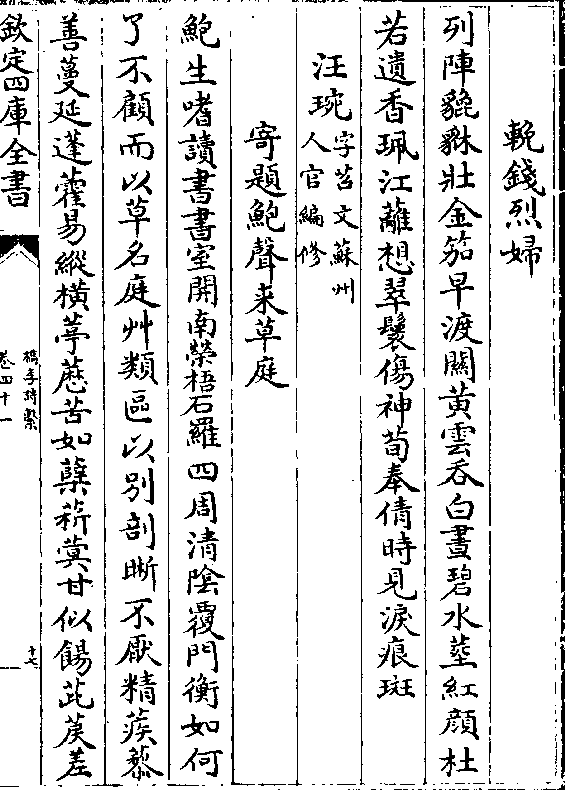 輓錢烈婦
列陣貔貅壯金笳早渡關黃雲吞白晝碧水塟紅顔杜
若遺香珮江蘺想翠鬟傷神荀奉倩時見淚痕斑
汪琬字苕文蘇州
人官編修
寄題鮑聲来草庭
鮑生嗜讀書書室開南榮梧石羅四周清陰覆門衡如何
了不顧而以草名庭艸類區以别剖晰不厭精蒺藜
善蔓延蓬藋易縱橫葶藶苦如蘗菥蓂甘似餳茈差
欽定四庫全書
檇李詩繫
卷四十一
十七